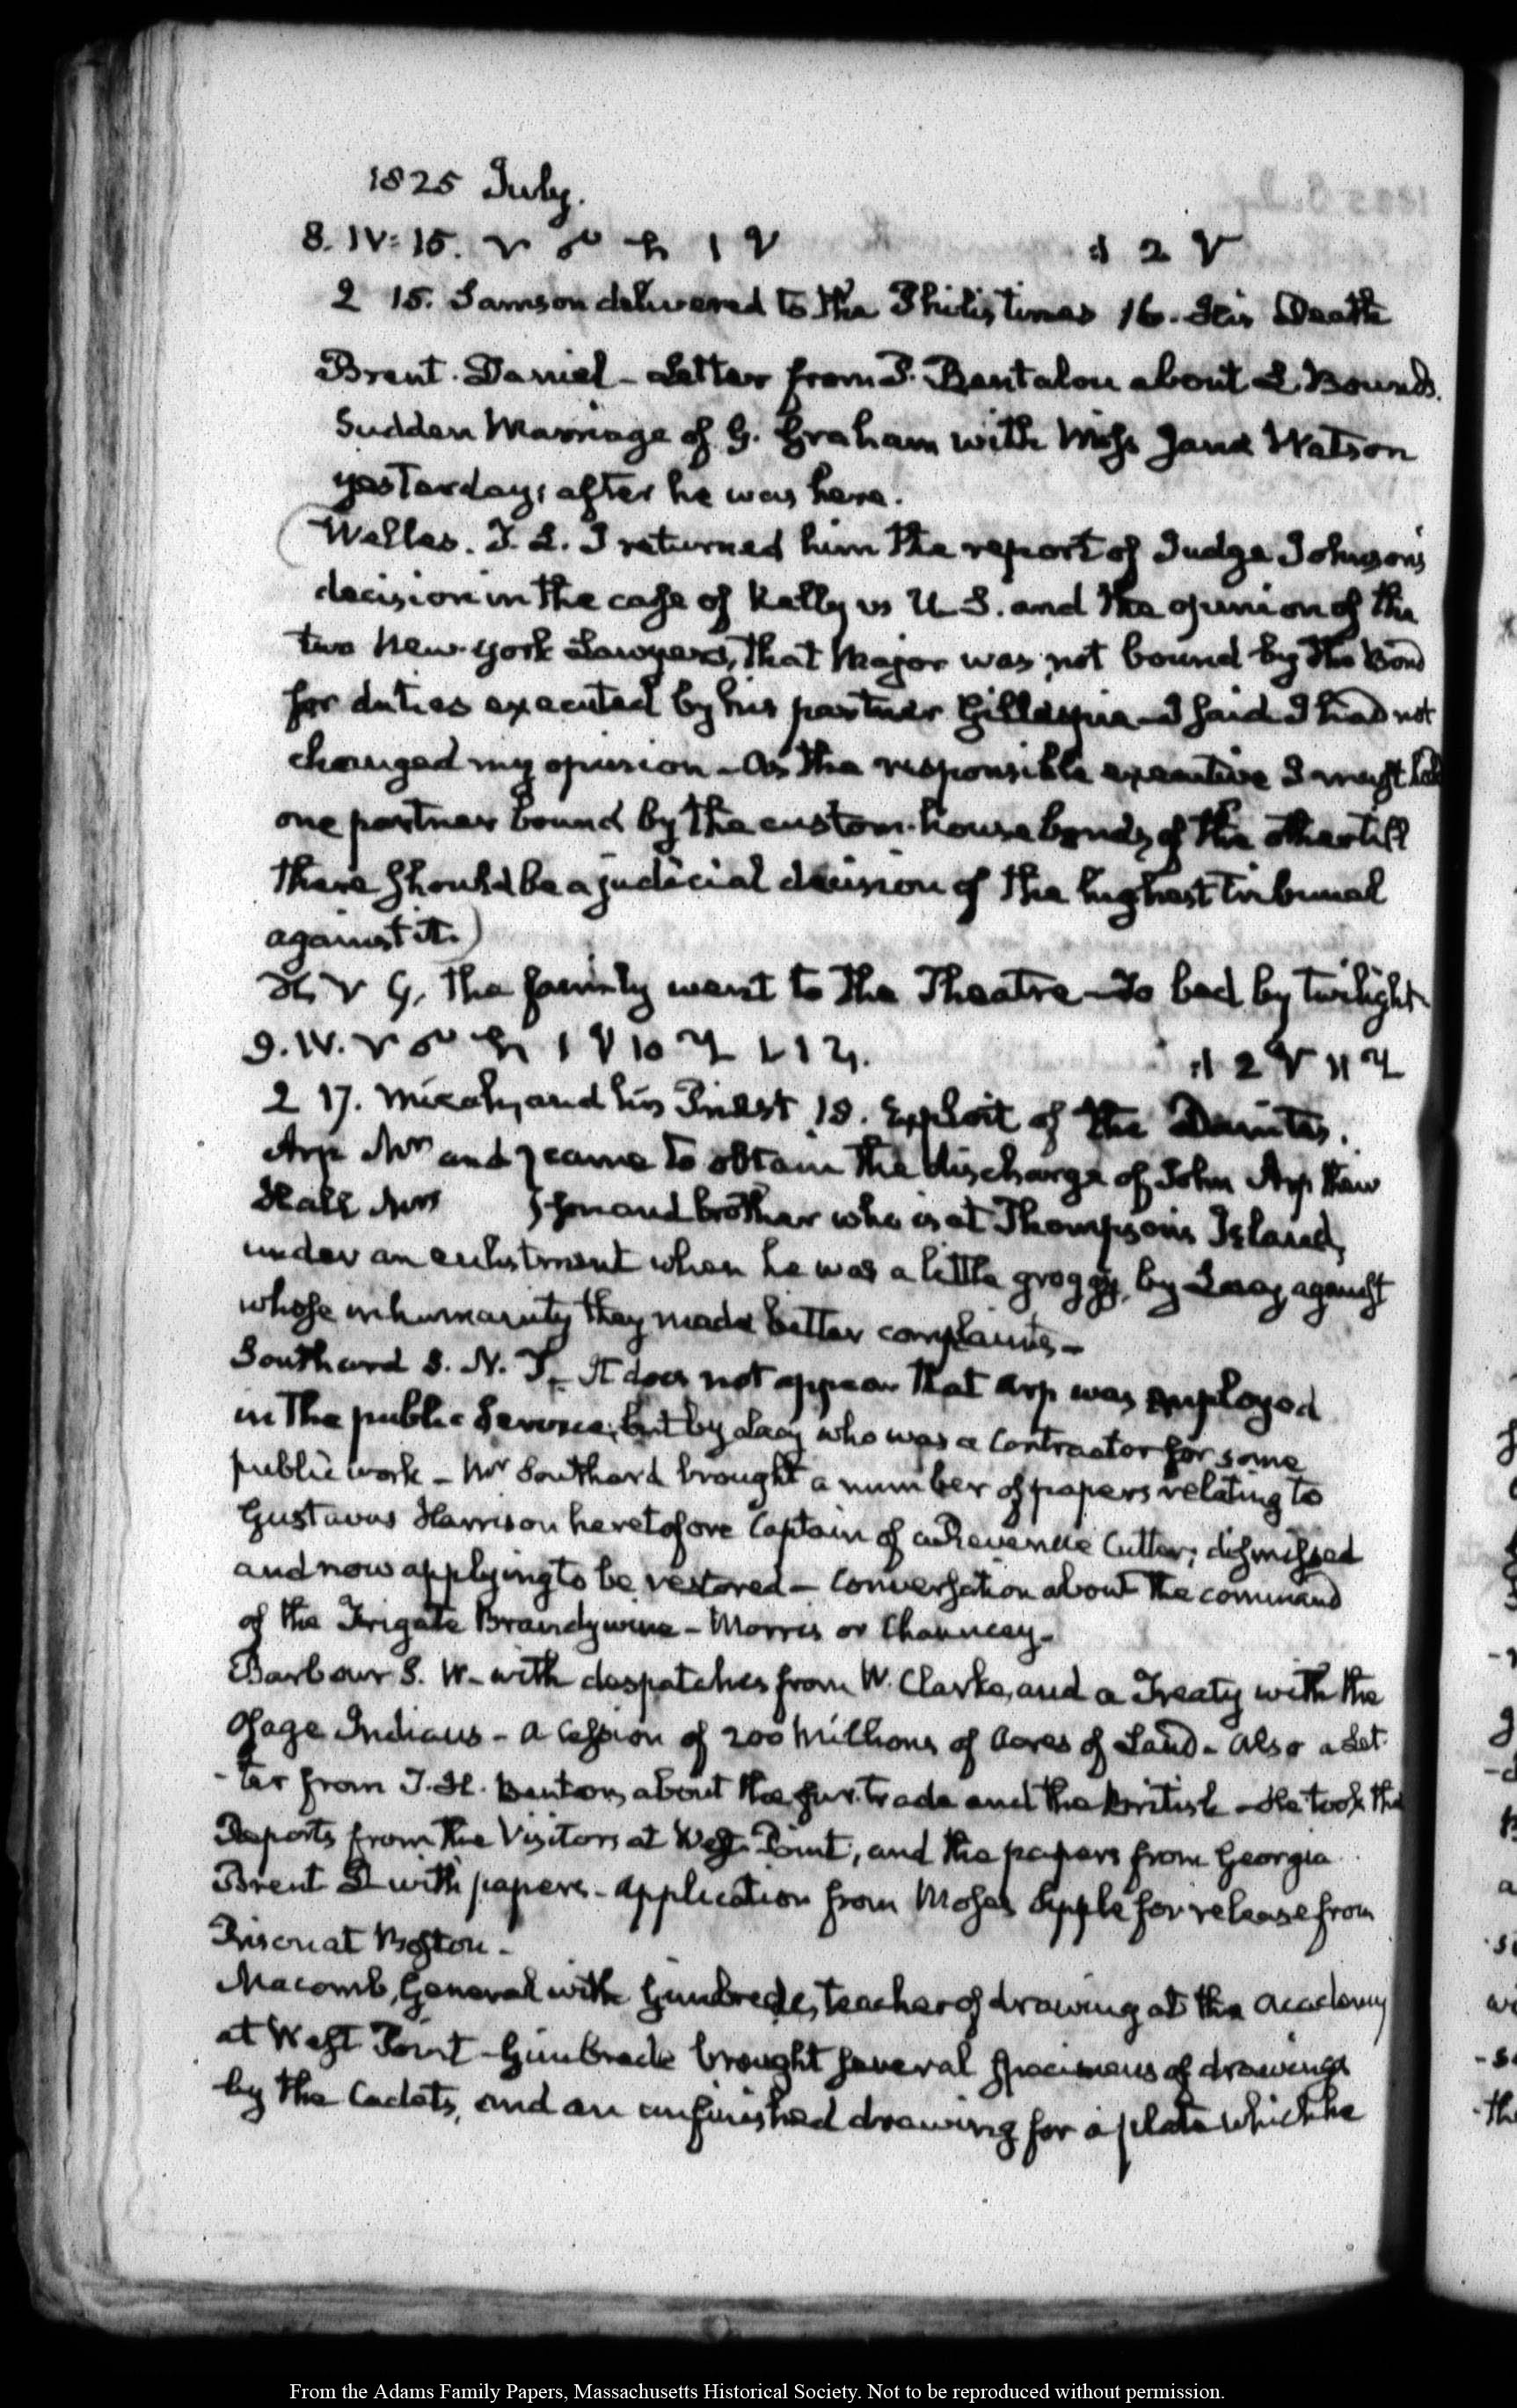 1825 July.
8. IV: 15.
2 15. Samson delivered to the Philistines 16. His Death
Brent. Daniel - Letter from P. Bentalou about L Bounds.
Sudden Marriage of G. Graham with Miss Jane Watson
yesterday, after he was here.
(Welles. I returned him the report of Judge Johnson's
decision in the case of Kelly vs U.S. and the opinion of the
two New-York Lawyers, that Major was not bound by the Bond
for duties executed by his partner Gillespie - I said I had not
changed my opinion - As the responsible executive I must hold
one partner bound by the custom-house bonds of the other till
there should be a judicial decision of the highest tribunal
against it.)
the family went to the Theatre - To bed by twilight.
9. IV.
2 17. Micah, and his Priest 18. Exploit of the Danites.
Arp Mrs and } came to obtain the discharge of John Arp their
Hall Mrs } son and brother who is at Thompson's Island,
under an enlistment when he was a little groggy, by Lacy, against
whose inhumanity they made bitter complaints -
Southard S. N. It does not appear that Arp was employed
in the public service; but by Lacy who was a Contractor for some
public work - Mr Southard brought a number of papers relating to
Gustavus Harrison heretofore Captain of a Revenue Cutter; dismissed
and now applying to be restored - Conversation about the command
of the Frigate Brandywine - Morris or Chauncey -
Barbour S. W. with despatches from W. Clarke, and a Treaty with the
Osage Indians - A Cession of 200 Millions of Acres of Land - Also a Let
-ter from T. H. Benton, about the fur-trade and the British - He took the
Reports from the Visitors at West-Point, and the papers from Georgia
Brent D with papers - Application from Moses Apple for release from
Prison at Boston -
Macomb, General with Gimbrede, teacher of drawing at the Academy
at West Point - Gimbrede brought several specimens of drawings
by the Cadets, and an unfinished drawing for a plate which he
From the Adams Family Papers, Massachusetts Historical Society. Not to be reproduced without permission.